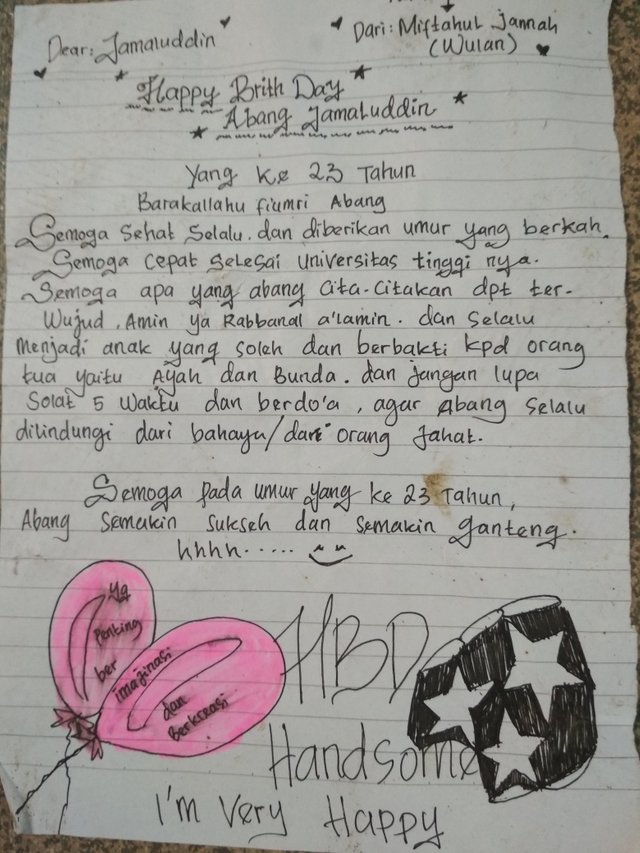 Dear: Jamaluddin
Dari: Miftahul Jannah
(Wulan)
Happy Brith Day
Abang Jamaluddin
Yang Ke 23 Tahun
Barakallahu fiumri Abang
Semoga Sehat Selalu. dan diberikan umur yang berkah.
Semoga Cepat Selesai Universitas tinggi nya.
Semoga apa yang abang Cita-Citakan dpt ter-
Wujud. Amin Ya Rabbanal a'lamin. dan Selalu
menjadi anak yang Soleh dan berbakti kpd orang
tua yaitu Ayah dan Bunda. dan jangan lupa
Solat 5 Waktu dan berdo'a, agar Abang Selalu
dilindungi dari bahaya/dari orang Jahat.
Semoga pada umur yang ke 23 Tahun,
Abang Semakin Sukseh dan Semakin Ganteng.
hhhh.....
Yg
Penting
ber
imajinasi
dan
Berkreasi
HBD
Handsome
I'm Very Happy